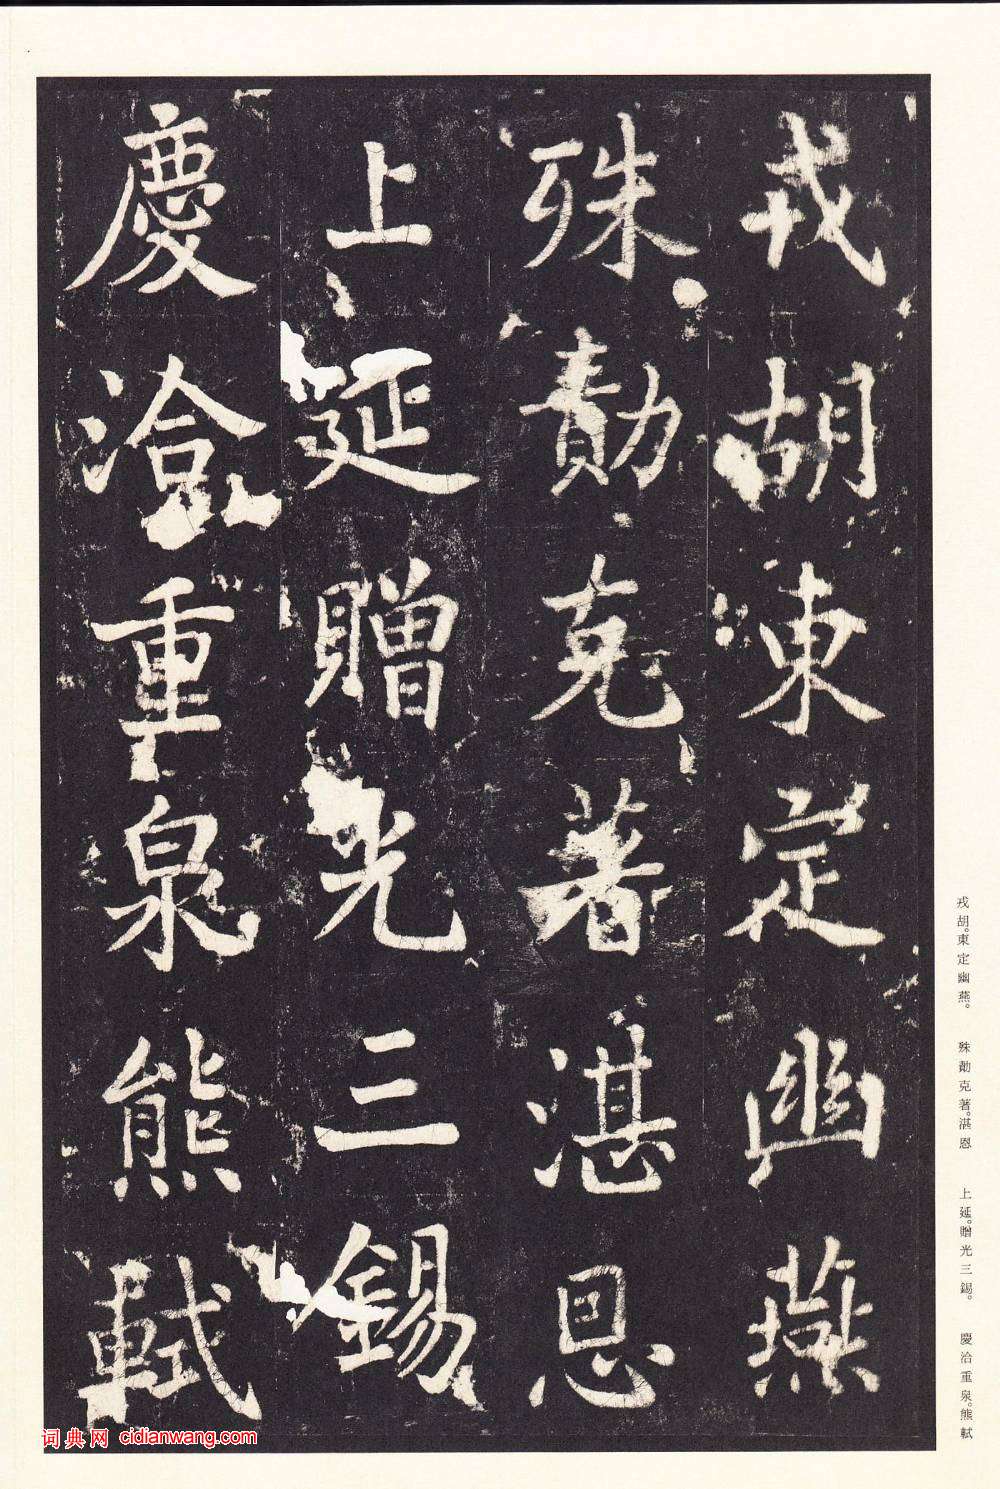 戎胡東定幽燕
殊勣克著湛恩
上延贈光三錫
慶洽重泉熊軾
戎胡。東定幽燕。
殊勣克著。湛恩
上延。贈光三錫。
慶洽重泉。熊軾
词典网 cidianwang.com